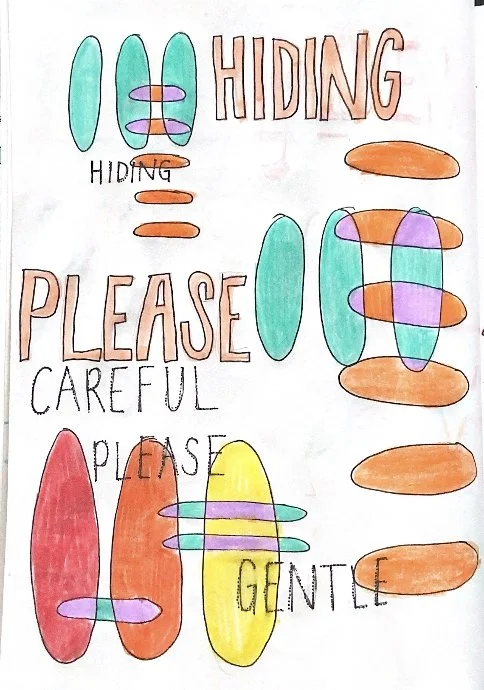 HIDING
HIDING
PLEASE
CAREFUL
PLEASE
GENTLE